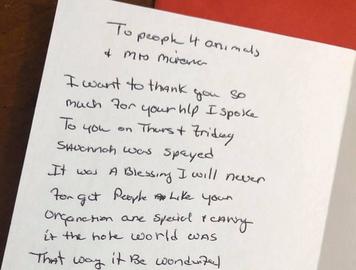 To people 4 animals
+ Mrs
I want to thank you so
much For your hlp I spoke
To you on Thurs + Friday
Savannah was spayed
It was A Blessing I will never
Forget People Like your
are special +
it the hole world was
That way it Be wonderful